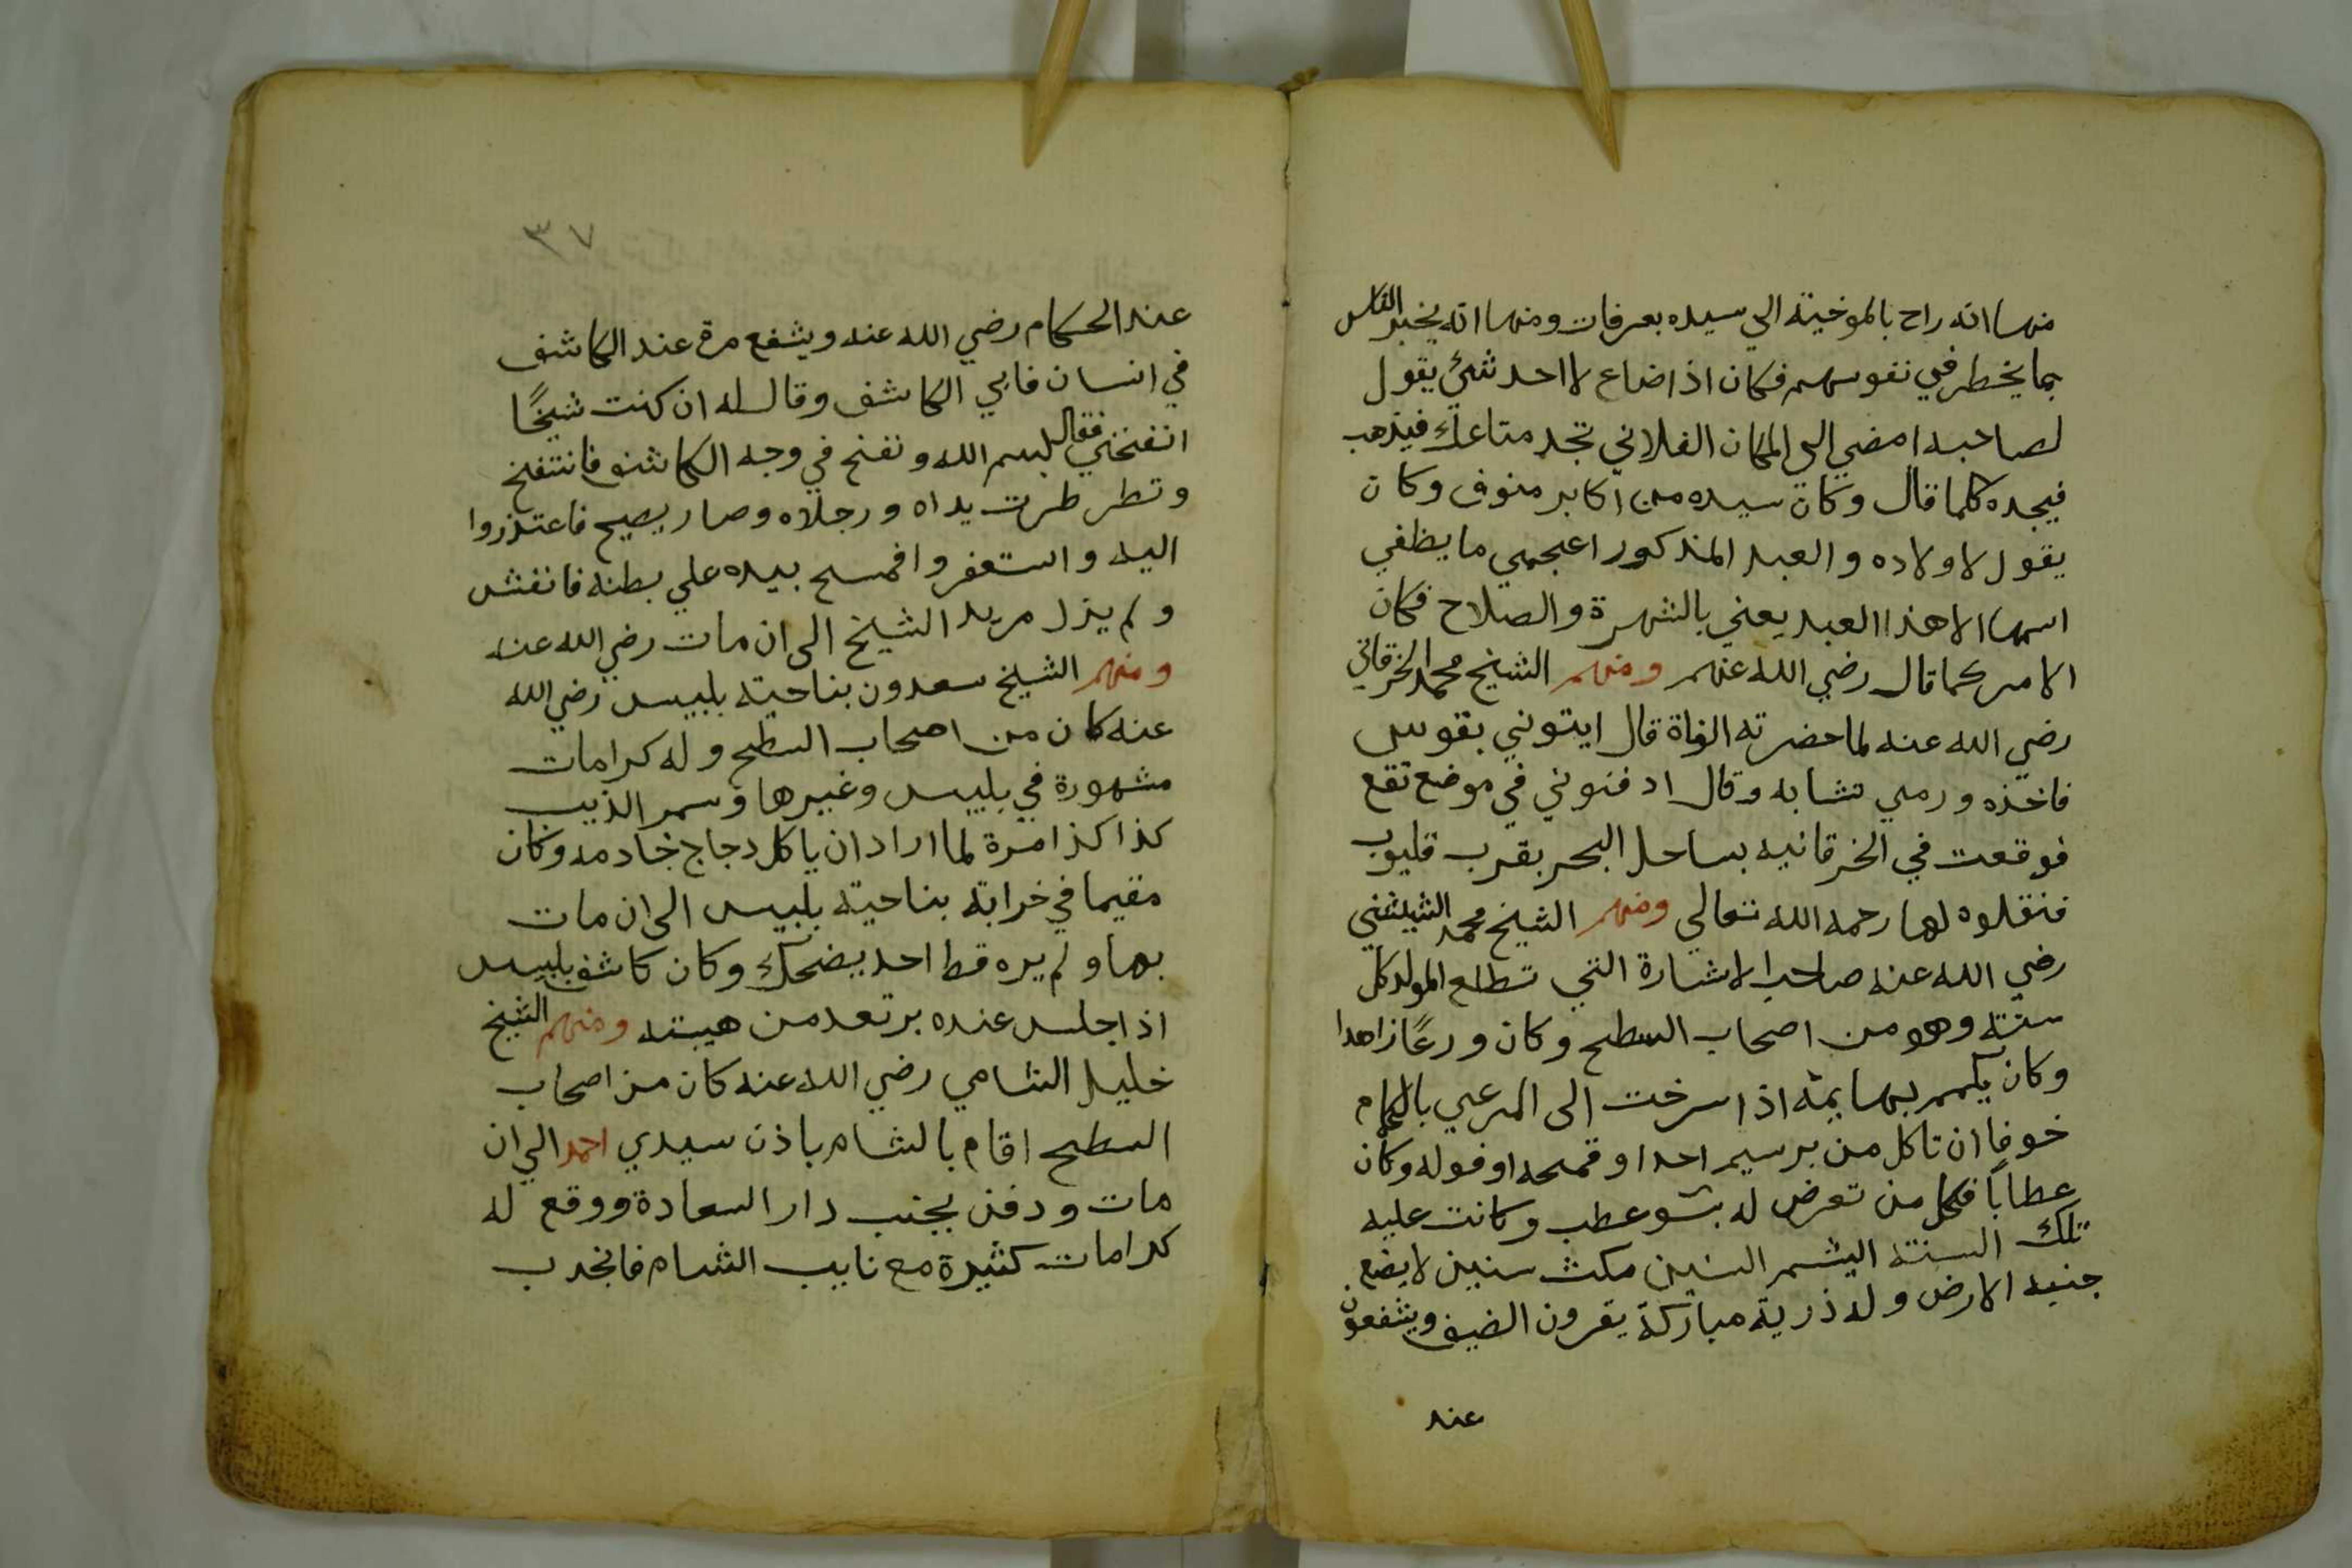 منها انه راح بالموخية الي سيده بعرفات ومنها انه يخبر الناس
بما يخطر في نفوسهم فكان اذا ضاع لااحد شئ يقول
لصاحبه امضي الى المكان الفلاني تجد متاعك فيذهب
فيجده كلما قال وكان سيده من اكابر منوف وكان
يقول لاولاده والعبد المذكور اعجمي ما يطفي
اسمها الا هذا العبد يعني بالشهرة والصلاح فكان
الامر كما قال رضي الله عنهم ومنهم الشيخ محمد الخرقاني
رضي الله عنه لما حضرته الوفاة قال ايتوني بقوس
فاخذه ورمي نشابه وقال ادفنوني في موضع تقع
فوقعت في الخرقانيه بساحل البحر بقرب قليوب
فنقلوه لها رحمه الله تعالي ومنهم الشيخ محمد الشيشيني
رضي الله عنه صاحب الاشارة التي تطلع المولد كل
سنته وهو من اصحاب السطح وكان ورعًا زاهدا
وكان يكمم بهايمه اذا سرخت الى المرعي بالكمام
خوفا ان تاكل من برسيم احد او قمحه او فوله وكان
عطابًا فكل من تعرض له بسو عطب وكانت عليه
تلك السنته مكث سنين لا يضع
جنبه الارض وله ذرية مباركة يقرون الضيف ويشفعون
عند
٣٧
عند الحكام رضي الله عنه ويشفع مرة عند الكاشف
في انسان فابي الكاشف وقال له ان كنت شيخًا
انفخني فقال بسم الله ونفخ في وجه الكاشف فانتفخ
وتطرطرت يداه ورجلاه وصار يصيح فاعتذروا
اليه واستغفروا فمسح بيده علي بطنه فانفش
ولم يزل مريد الشيخ الى ان مات رضي الله عنه
ومنهم الشيخ سعدون بناحية بلبيس رضي الله
عنه كان من اصحاب السطح وله كرامات
مشهورة في بلبيس وغيرها وسمر الذيب
كذا كذا مرة لما اراد ان ياكل دجاج خادمه وكان
مقيما في خرابة بناحية بلبيس الى ان مات
بها ولم يره قط احد يضحك وكان كاشف بلبيس
اذا جلس عنده يرتعد من هيبته ومنهم الشيخ
خليل الشامي رضي الله عنه كان من اصحاب
السطح اقام بالشام باذن سيدي احمد الي ان
مات ودفن بجنب دار السعادة ووقع له
كرامات كثيرة مع نايب الشام فانجدب